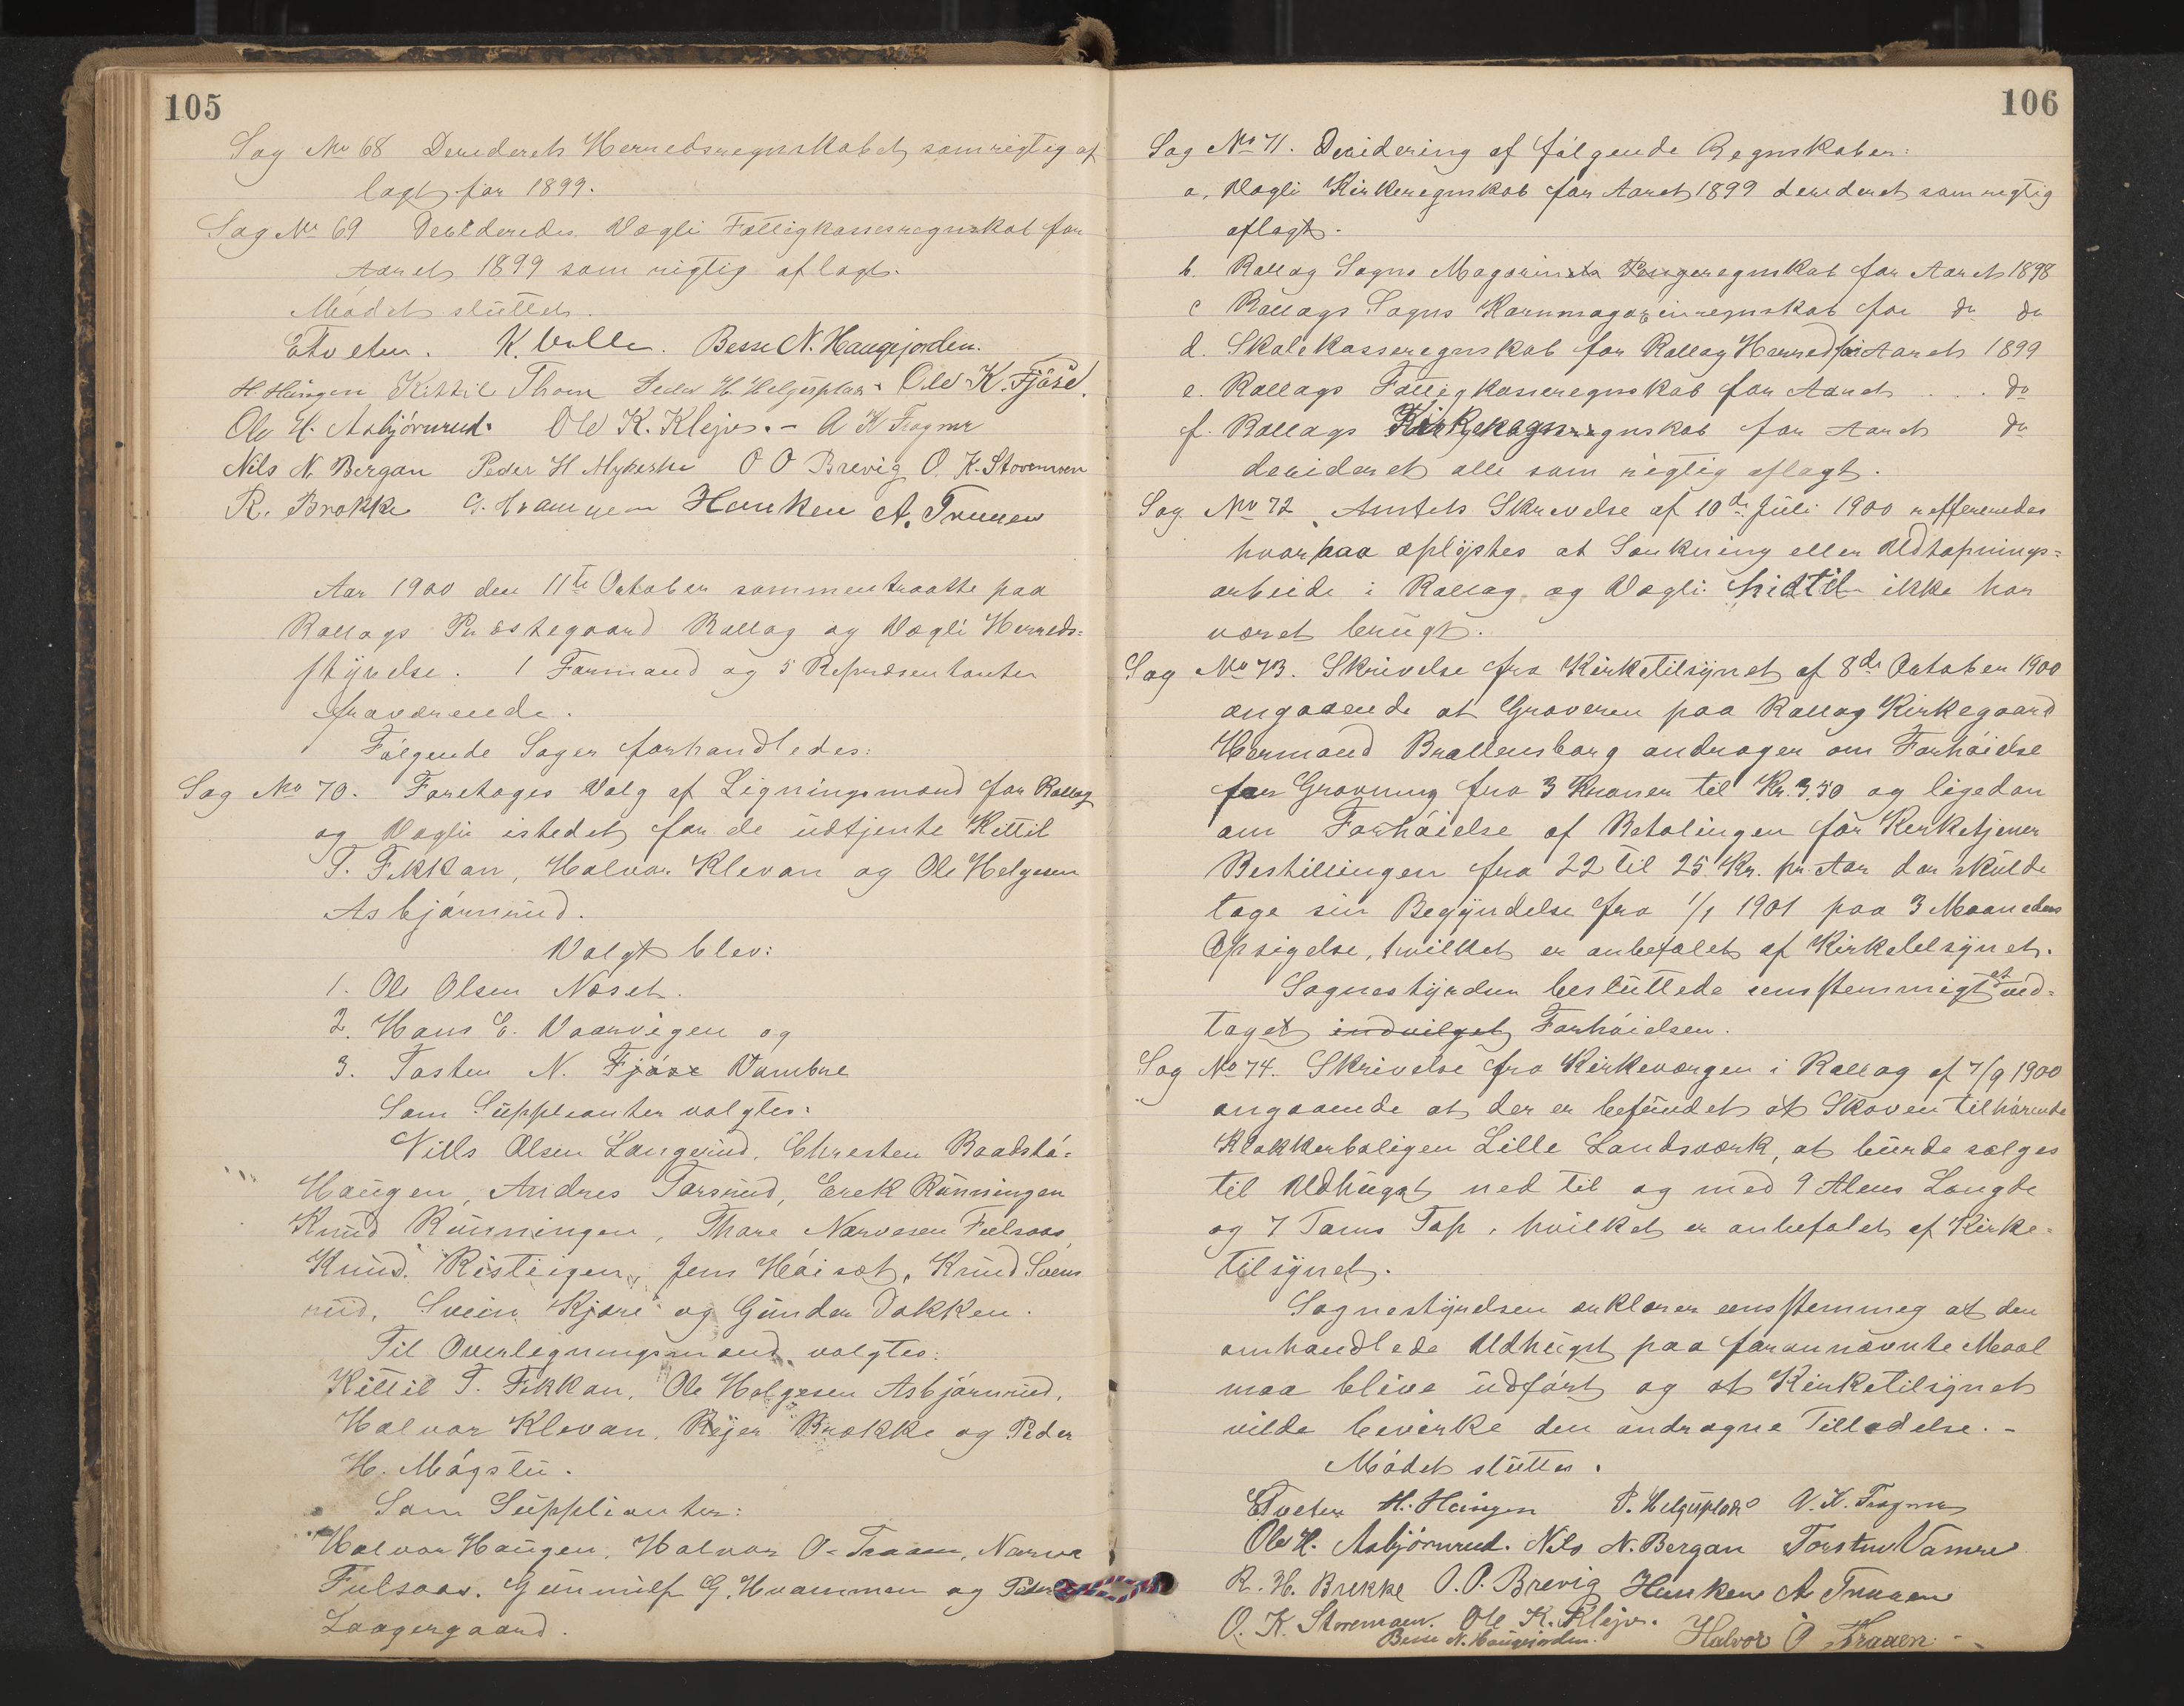 105
Sag No 68 Decideredes Herredsregnskabet som rigtig af
lagt for 1899.
Sag No 69 Decideredes Vægli Fattigkasseregnskab for
Aaret 1899 som rigtig aflagt.
Mødet sluttet.
ETveten. K. Besse N. Haugejorden.
H. Haugen Kittil Peder H. Helgesplads Ole K. Fjøse.
Ole H. Asbjørnrud. Ole K. Klejv. - A K Fragner
Nils N. Bergan Peder H O O Brevig O. K. Storemoen
R. Brøkke G. Hvammen Hanken A. Traaen
Aar 1900 den 11te October sammentraatte paa
Rollags Præstegaard Rollag og Vægli Herreds=
styrelse. 1 Formand og 5 Repræsentanter
fraværende.
Følgende Sager forhandledes:
Sag No 70. Foretoges Valg af Ligningsmænd for Rollag
og Vægli istedet for de udtjente Kittil
T. Fekkan, Halvor Klevan og Ole Helgesen
Asbjørnrud.
Valgt blev:
1. Ole Olsen Næset.
2. Hans E. Vaarvigen og
3. Tosten N. Fjøse Vambre
Som Supplianter valgtes:
Nills Olsen Langerud, Christen Baadstø=
Haugen, Andres Tarsrud, Erek Rünningen
Knud Rünningen, Thore Narvesen Fulsaas,
Knud Jens Høisæt, Knud Svens
rud, Svein Kjøre og Gunder Dokken.
Til Overlegningsmænd valgtes:
Kittil T. Fekkan, Ole Helgesen Asbjørnrud,
Halvor Klevan, Rejer Brøkke og Peder
H. Møgstu.
Som Supplianter:
Halvor Haugen, Halvor O. Traaen, Narve
Fulsaas, Gunnulf G. Hvammen og Peder
Laagergaard.
106
Sag No 71. Decidering af følgende Regnskaber:
a. Vægli Kirkeregnskab for Aaret 1899 decideret som rigtig
aflagt.
b. Rollag Sogns Magasins Pengeregnskab for Aaret 1898
c Rollags Sogns Kornmagazinregnskab for do do
d. Skolekasseregnskab for Rollag Herred for Aaret 1899
e. Rollags Fattigkasseregnskab for Aaret . . . do
f. Rollags regnskab for Aaret do
decideret alle som rigtig aflagt.
Sag No 72. Amtets Skrivelse af 10de Juli 1900 refferenedes
hvorpaa oplystes at Sænkning eller Udtapnings=
arbeide i Rollag og Vægli hidtil ikke har
været brugt.
Sag No 73. Skrivelse fra Kirketilsynet af 8de October 1900
angaaende at Graveren paa Rollag Kirkegaard
Hermand Brattensborg andrager om Forhøielse
for Gravning fra 3 Kroner til Kr. 3,50 og ligedan
om Forhøielse af Betalingen for Kerketjener
Bestillingen fra 22 til 25 Kr. pr. Aar der skulde
tage sin Begyndelse fra 1/1 1901 paa 3 Maaneders
Opsigelse, hvilket er anbefalet af Kirketilsynet.
Sognestyrelsen besluttede eensstemmigt at ved=
taget indvilget Forhøielsen.
Sag No 74. Skrivelse fra Kirkeværgen i Rollag af 7/9 1900
angaaende at der er befundet at Skoven tilhørende
Klokkerboligen Lille Landsværk, at burde sælges
til Udhugst ned til og med 9 Alens Længde
og 7 Toms Top, hvilket er anbefalet af Kirke=
tilsynet.
Sognestyrelsen erklærer eensstemmeg at den
omhandlede Udhugst paa forannævnte Maal
maa blive udført og at Kirketilsynet
vilde bevirke den andragne Tilladelse. -
Mødet sluttes.
ETveten H. Haugen P. Helgesplads A. K. Fragner
Ole H. Asbjørnrud. Nils N. Bergan Torsten Vamre
R. H. Brekke O. O. Brevig Hanken A Traaen
O. K. Storemoen. Ole K. Klejv.
Besse N. Haugejorden. Halvor O Traaen.